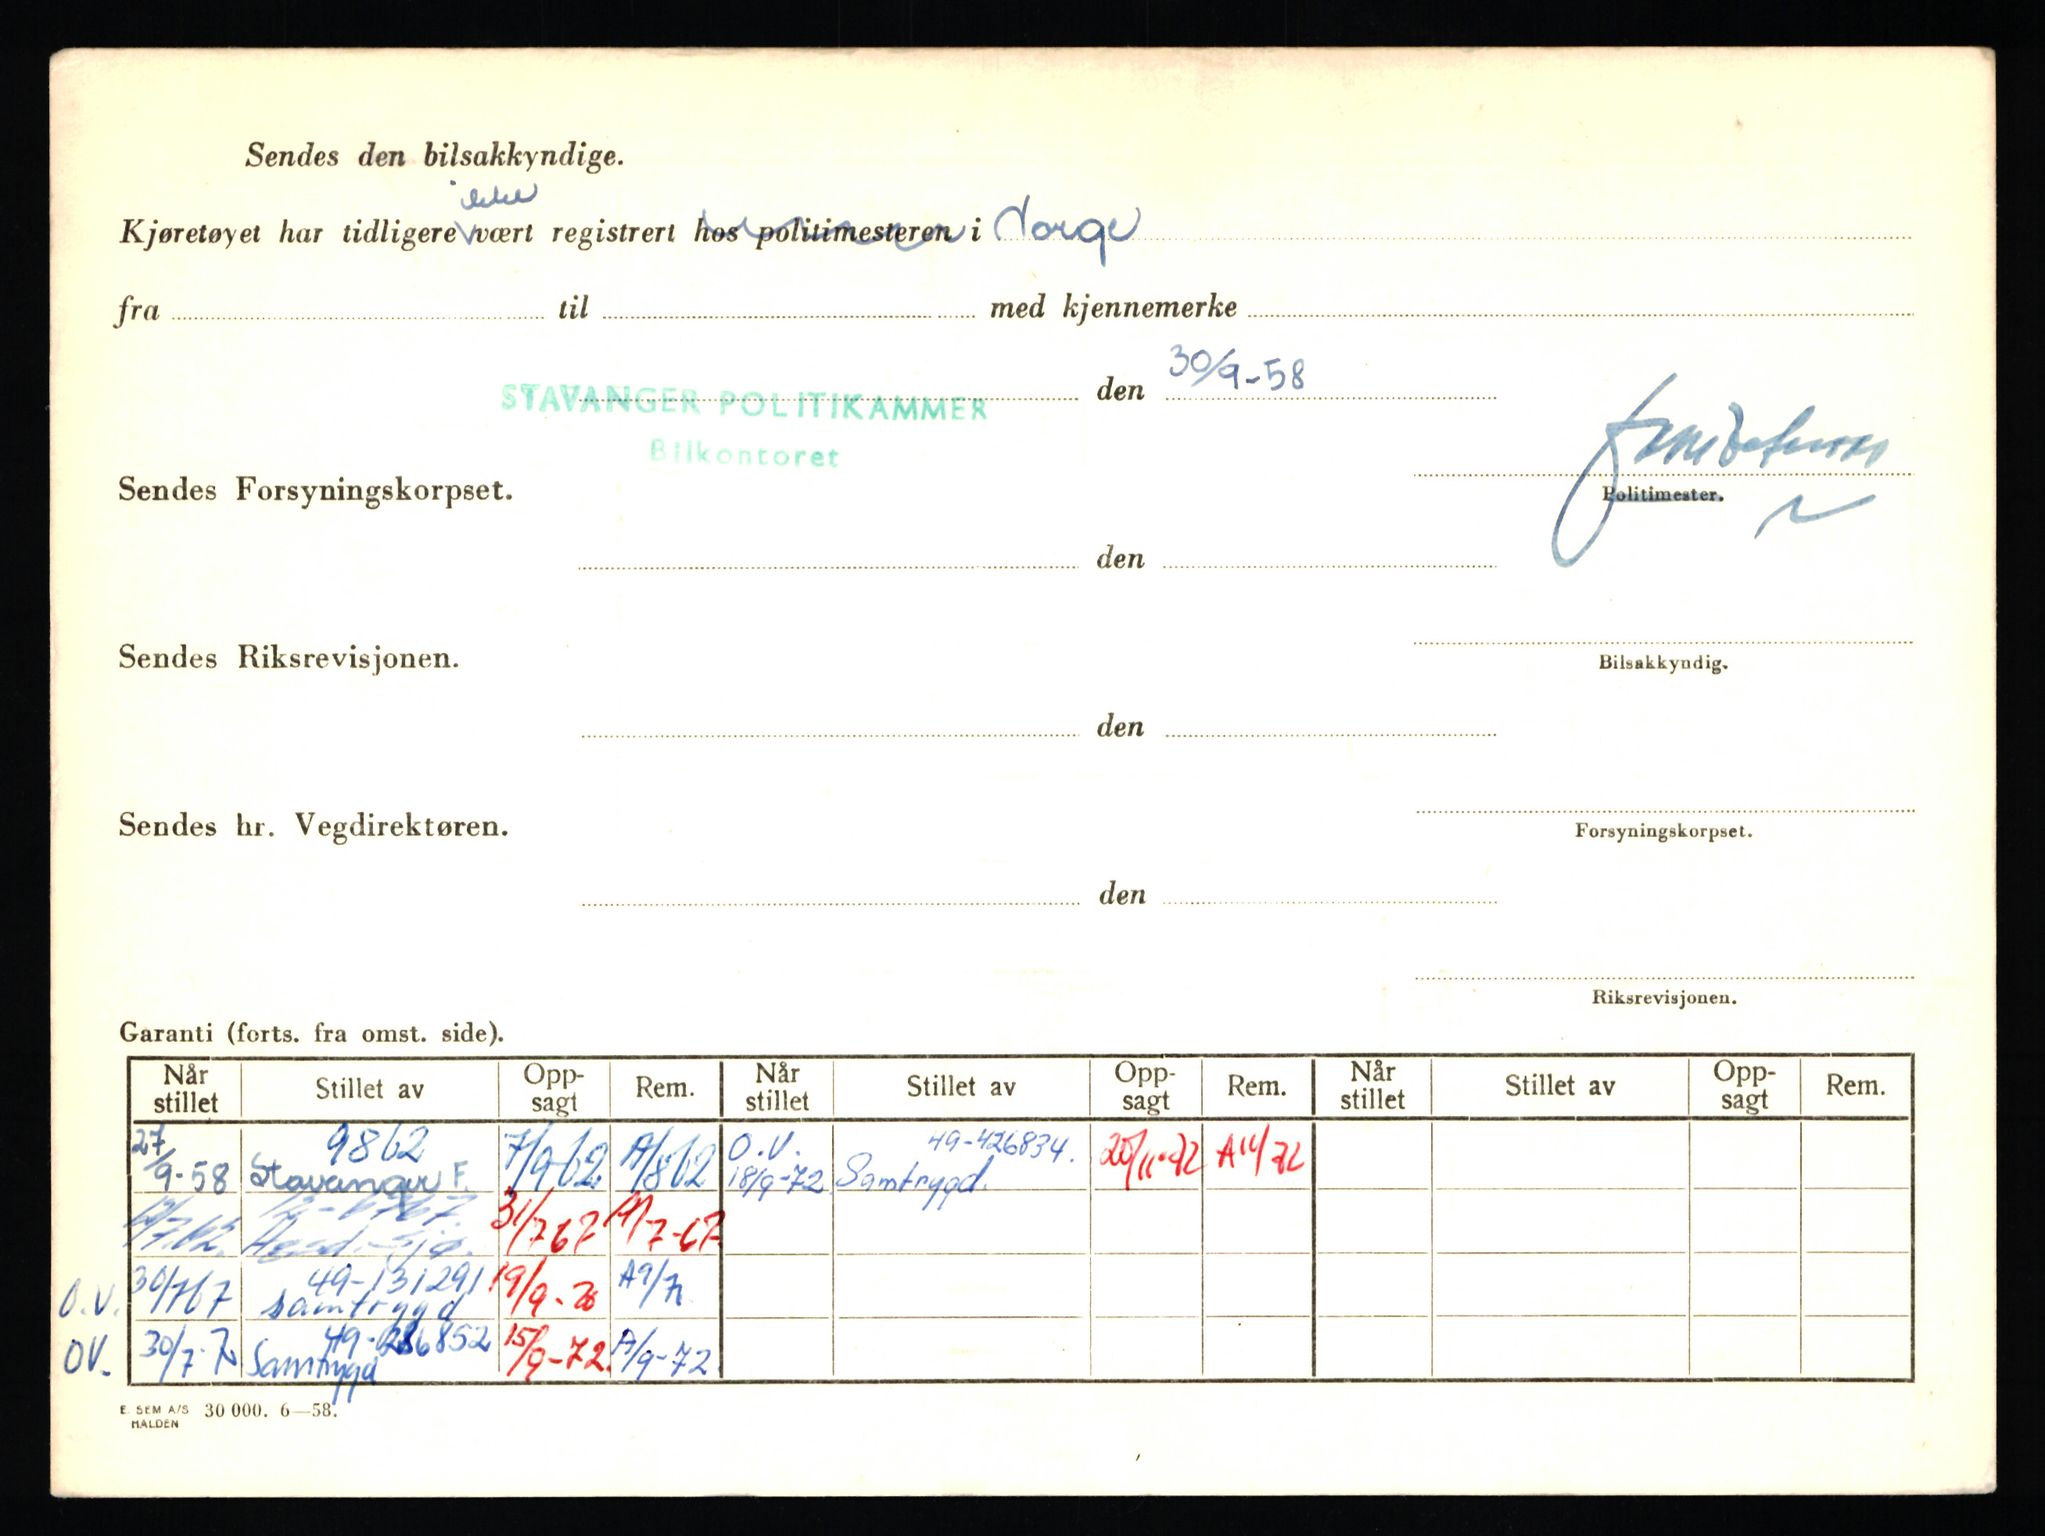 Sendes den bilsakkyndige.
ikke
Kjøretøyet har tidligere vært registrert hos politimesteren i Norge
fra til med kjennemerke
den 30/9-58
STAVANGER POLITIKAMMER
Bilkontoret
Politimester.
Sendes Forsyningskorpset.
den
Bilsakkyndig.
Sendes Riksrevisjonen.
den
Forsyningskorpset.
Sendes hr. Vegdirektøren.
den
Riksrevisjonen.
Garanti (forts. fra omst. side).
Når stillet Stillet av Opp-sagt Rem. Når stillet Stillet av Opp-sagt Rem. Når stillet Stillet av Opp-sagt Rem.
27/9-58 9862 Stavanger F. 7/9-62 A/862 O.V. 18/9-72 49-426834. Samtrygd. A14/72
31/7 67 A/7-67
O.V. 30/7 67 49-131291 Samtrygd 19/9-70 A9/71
OV. 30/7-70 Samtrygd 15/9-72. A/9-72
E. SEM A/S HALDEN 30 000. 6—58.